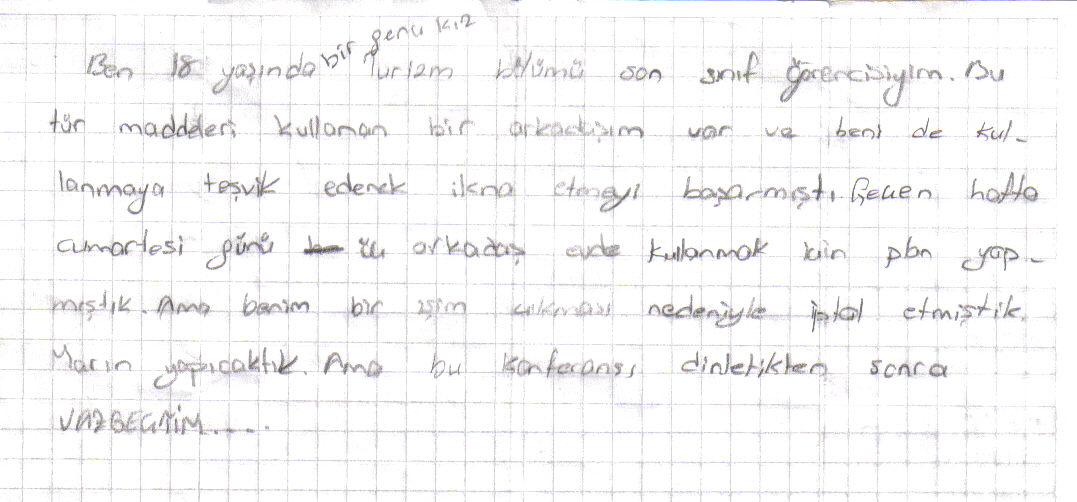 Ben 18 yaşında bir genç kız Turizm bölümü son sınıf öğrencisiyim. Bu
tür maddeleri kullanan bir arkadaşım var ve beni de kul-
lanmaya teşvik ederek ikna etmeyi başarmıştı. Geçen hafta
cumartesi günü üç arkadaş evde kullanmak için plan yap-
mıştık. Ama benim bir işim çıkması nedeniyle iptal etmiştik.
Yarın yapıcaktık. Ama bu konferansı dinletikten sonra
VAZGEÇTİM.....